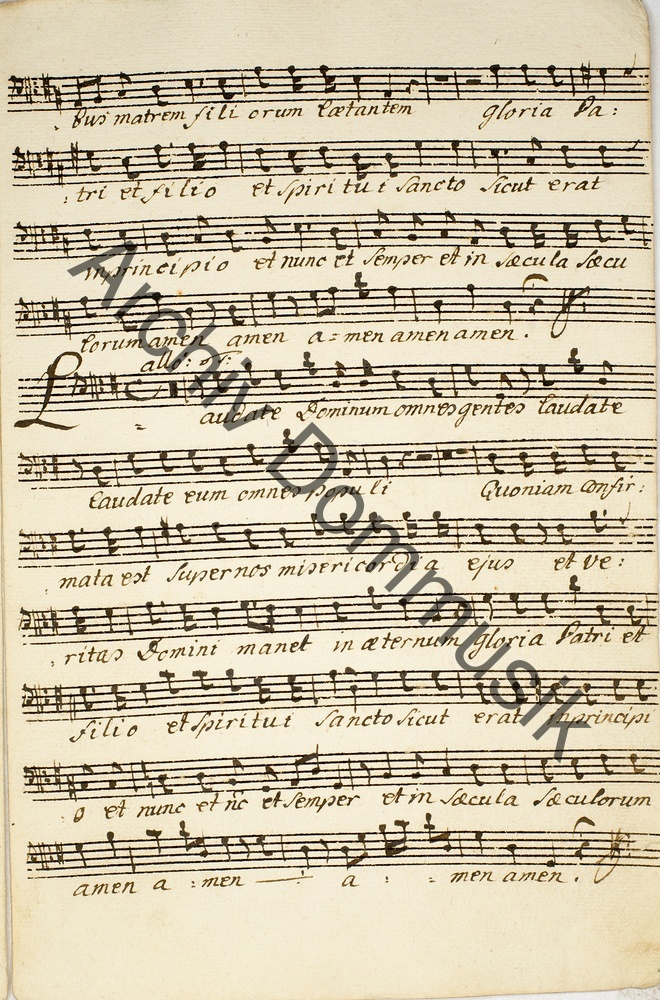 bus matrem fili orum Lætantem gloria Pa:
: tri et filio et spiri tu i sancto sicut erat
in principio et nunc et semper et in sæcula sæcu
lorum amen amen a = men amen amen.
allo:
Laudate Dominum omnes gentes laudate
laudate eum omnes populi Quoniam Confir:
mata est super nos misericordia ejus et ve:
: ritas Domini manet in æternum gloria Patri et
filio et spiritui sancto sicut erat in principi
o et nunc et nc et semper et in sæcula sæculorum
amen a : men a : = men amen.
Archiv Dommusik